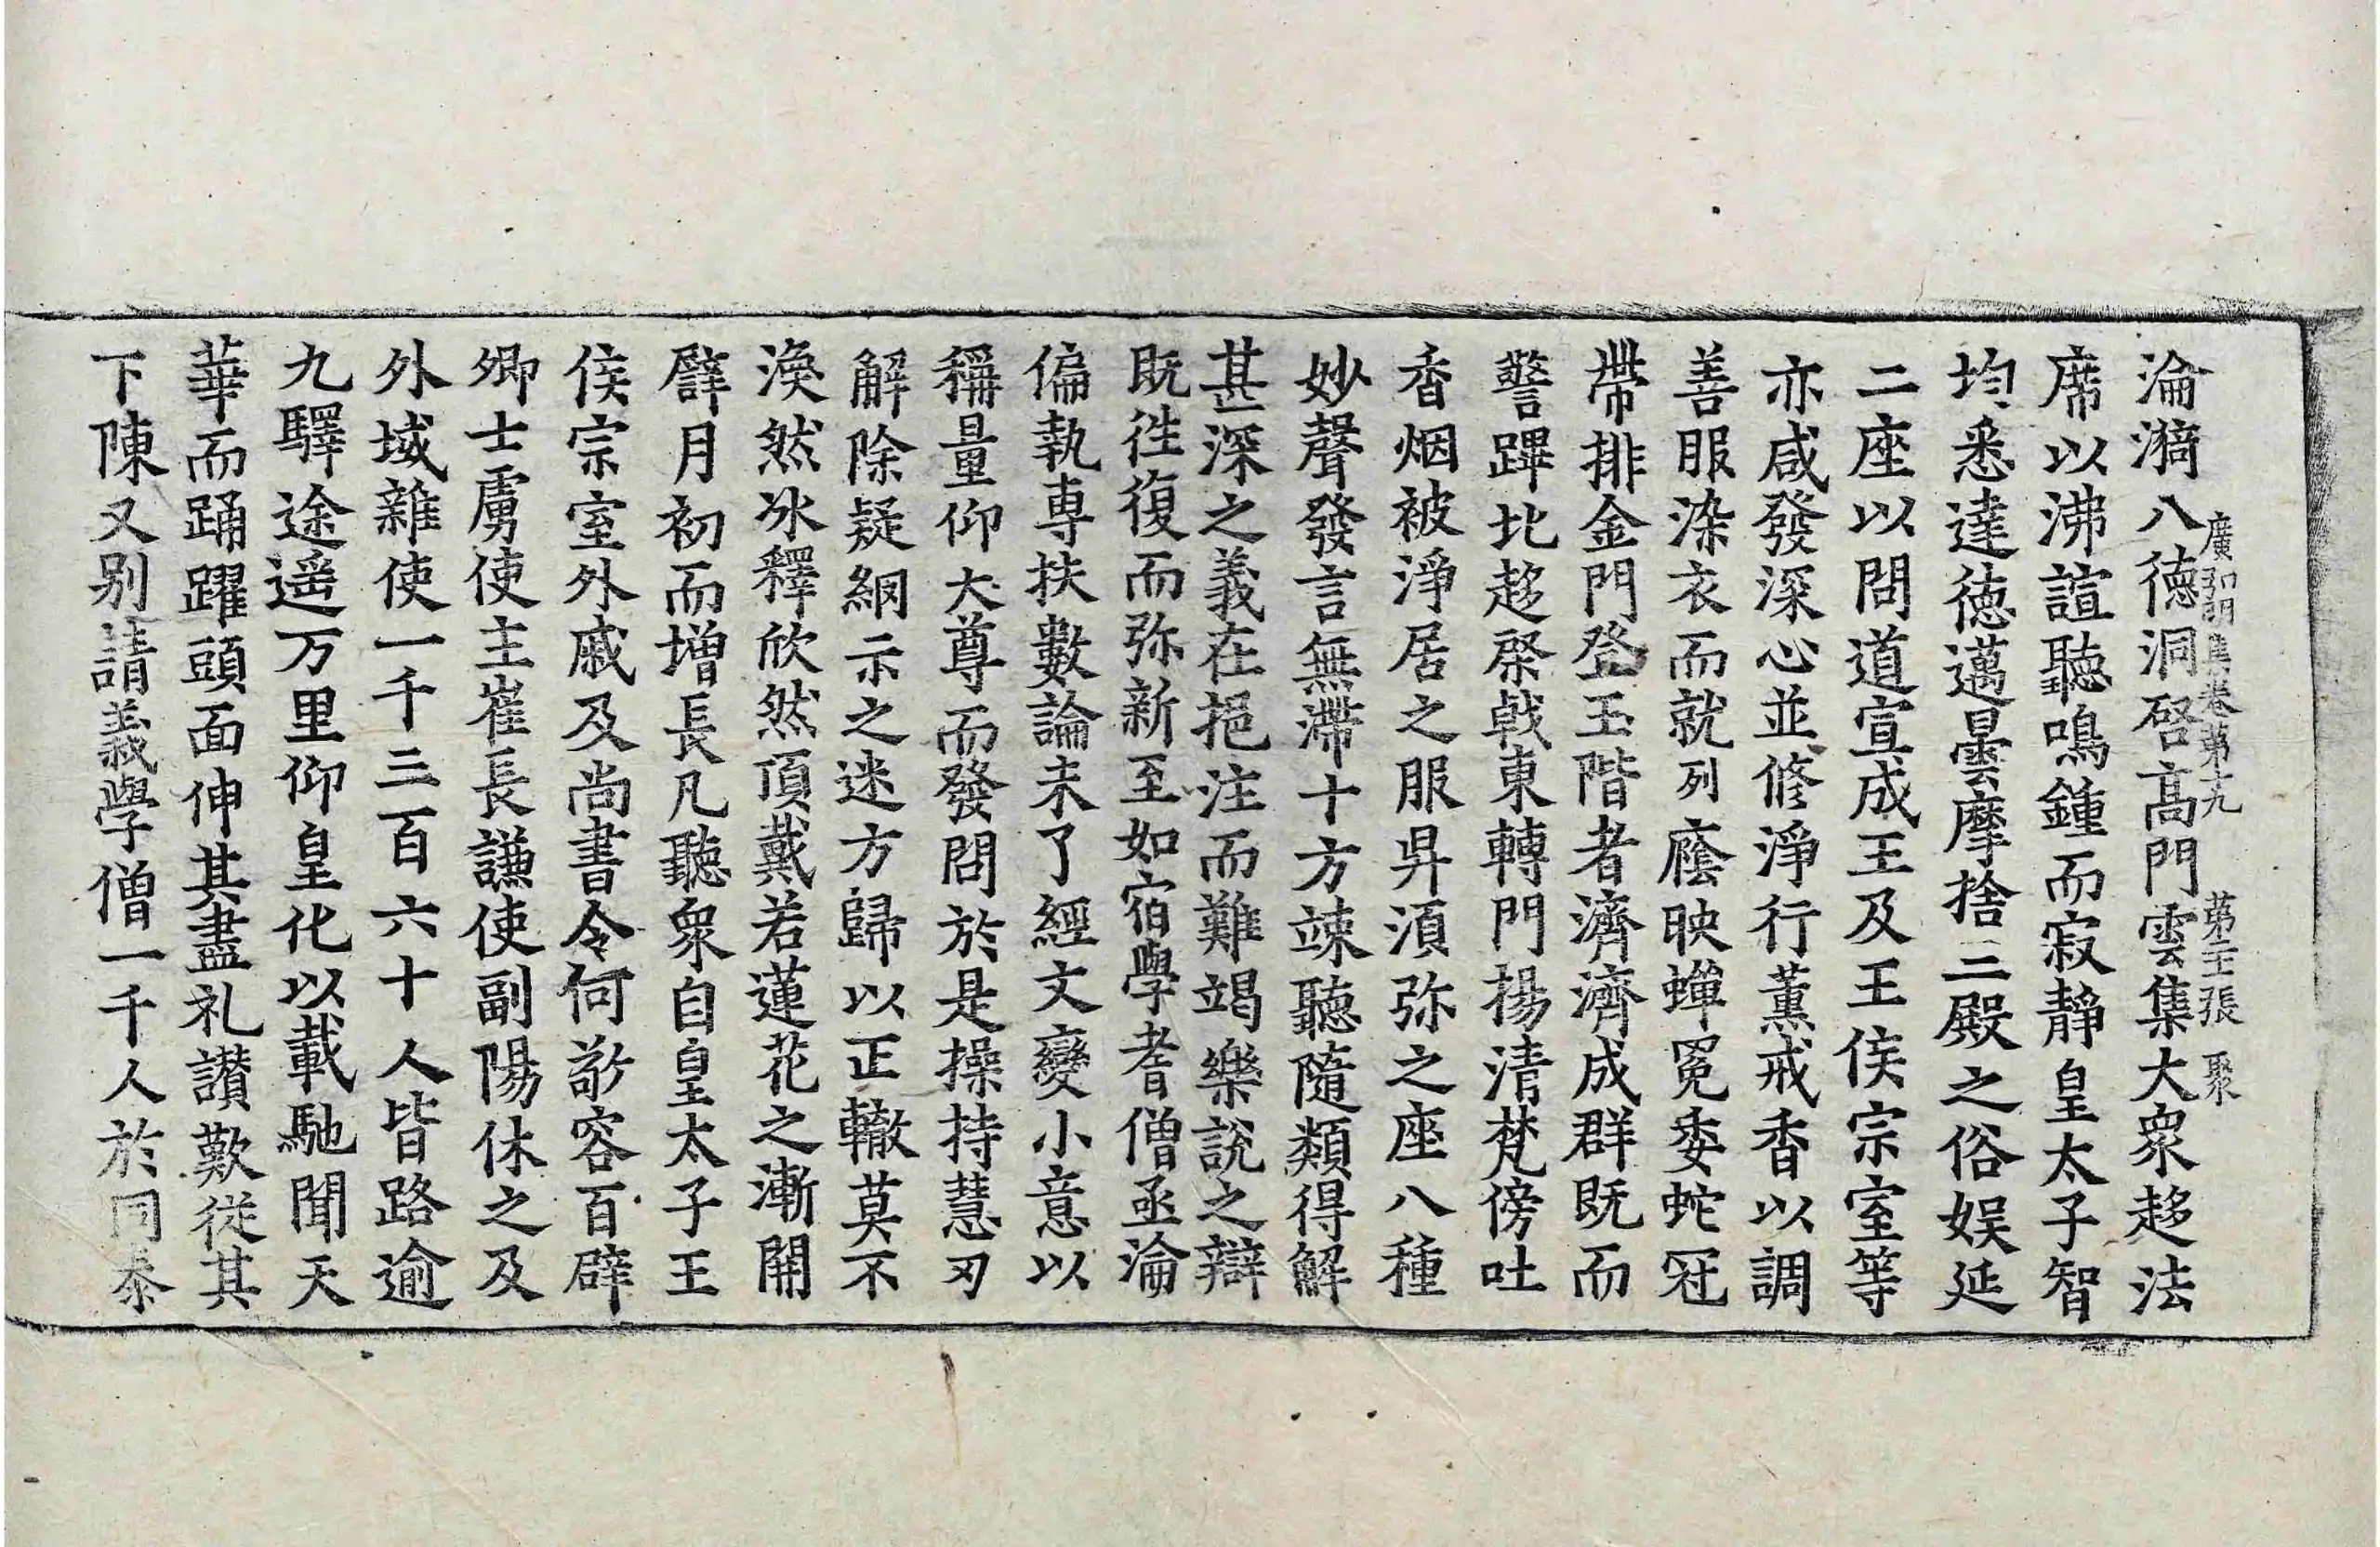 淪漪八德洞啓高門雲集大衆趍法
廣弘明集卷第十九 第二十張 聚
席以沸諠聽鳴鍾而寂靜皇太子智
均悉達德邁曇摩捨三殿之俗娱延
二座以問道宣成王及王侯宗室等
亦咸發深心並修淨行薰戒香以調
善服染衣而就列廕映蟬冕委蛇冠
帶排金門登玉階者濟濟成群既而
警蹕北趍棨戟東轉門揚清梵傍吐
香烟被淨居之服昇湏弥之座八種
妙聲發言無滯十方竦聽隨類得解
甚深之義在挹注而難竭樂說之辯
既往復而弥新至如宿學耆僧亟淪
偏執專扶數論未了經文變小意以
稱量仰大尊而發問於是操持慧刃
解除疑網示之迷方歸以正轍莫不
渙然冰釋欣然頂戴若蓮花之漸開
譬月初而增長凡聽衆自皇太子王
侯宗室外戚及尚書令何敬容百辟
卿士虜使主崔長謙使副陽休之及
外域雜使一千三百六十人皆路逾
九驛途遥万里仰皇化以載馳聞天
華而踊躍頭面伸其盡礼讃歎從其
下陳又别請義學僧一千人於同泰